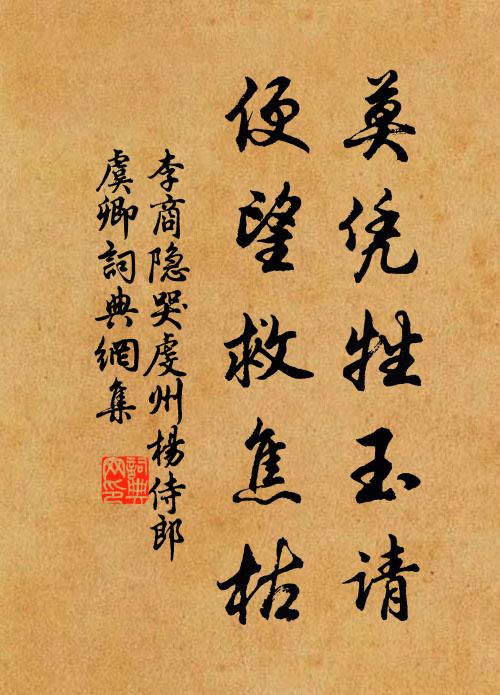 莫凭牲玉请
便望救焦枯
李商隐哭虔州楊侍郎
虞卿詞典網集
詞典网印